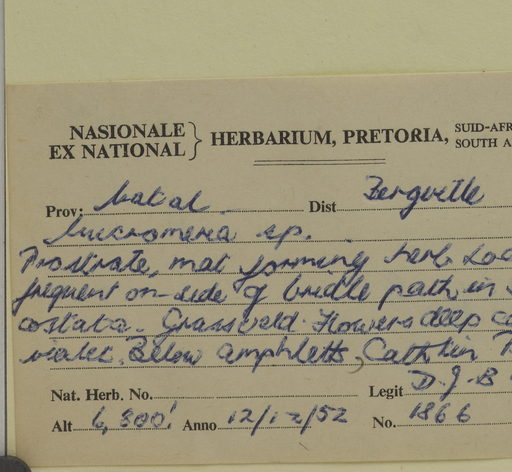 NASIONALE
EX NATIONAL } HERBARIUM, PRETORIA, SUID-AFR
SOUTH A
Prov: Natal Dist Bergville
Micromeria sp.
Prostrate, mat forming herb. Loc
frequent on side of bridle path in
costata. Grassveld. Flowers deep
Below amphletts, Cathkin
Nat. Herb. No. Legit D.J.B
Alt 6,800' Anno 12/12/52 No. 1866